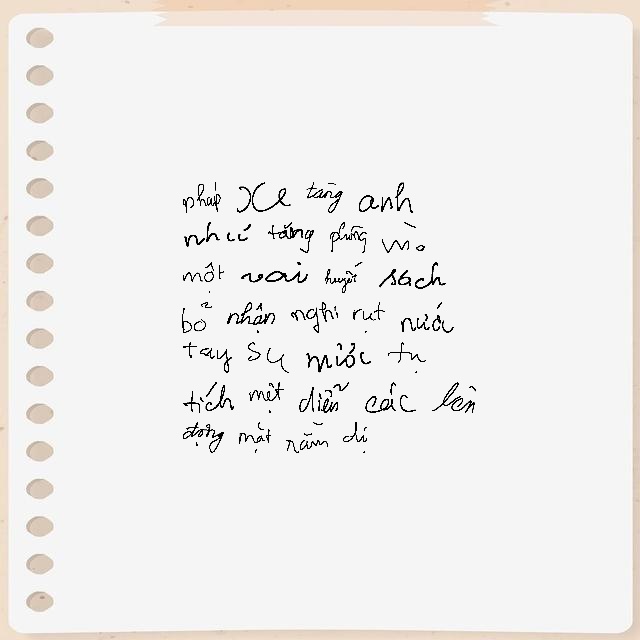 pháp xe tăng anh
như tăng phũng mò
một vai huyết sách
bổ nhận nghi rụt nước
tay sụ mước tụ
tích mệt diễn các lên
động mặt nằm dị